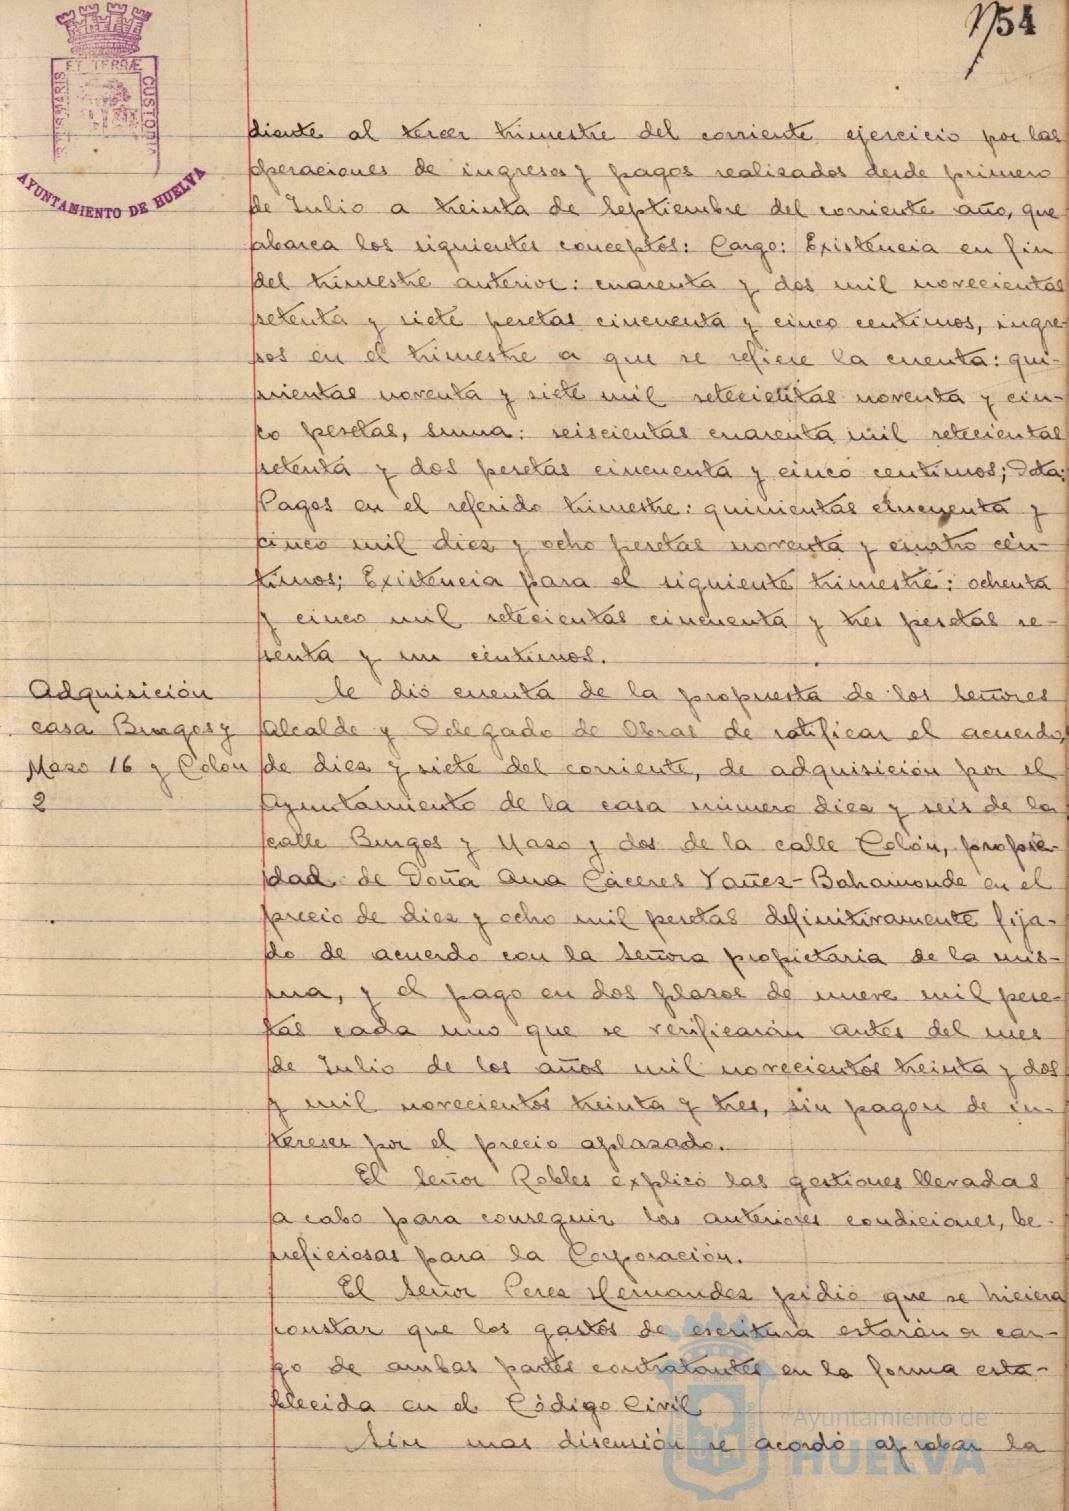 54
ET TERRÆ
PORTUS MARIS
CUSTODIA
AYUNTAMIENTO DE HUELVA
diente al tercer trimestre del corriente ejercicio por las
operaciones de ingresos y pagos realizados desde primero
de Julio a treinta de Septiembre del corriente año, que
abarca los siguientes conceptos: Cargo: Existencia en fin
del trimestre anterior: cuarenta y dos mil novecientas
setenta y siete pesetas cincuenta y cinco centimos, ingre-
sos en el trimestre a que se refiere la cuenta: qui-
nientas noventa y siete mil setecientas noventa y cin-
co pesetas, suma: seiscientas cuarenta mil setecientas
setenta y dos pesetas cincuenta y cinco centimos; Data:
Pagos en el referido trimestre: quinientas cincuenta y
cinco mil diez y ocho pesetas noventa y cuatro cén-
timos; Existencia para el siguiente trimestre: ochenta
y cinco mil setecientas cincuenta y tres pesetas se-
senta y un céntimos.
Adquisición
casa Burgos y
Mazo 16 y Colon
2
Se dió cuenta de la propuesta de los Señores
Alcalde y Delegado de Obras de ratificar el acuerdo,
de diez y siete del corriente, de adquisición por el
Ayuntamiento de la casa número diez y seis de la
calle Burgos y Mazo y dos de la calle Colón, propie-
dad de Doña Ana Cáceres Yañez-Bahamonde en el
precio de diez y ocho mil pesetas definitivamente fija-
do de acuerdo con la Señora propietaria de la mis-
ma, y el pago en dos plazos de nueve mil pese-
tas cada uno que se verificarán antes del mes
de Julio de los años mil novecientos treinta y dos
y mil novecientos treinta y tres, sin pagon de in-
tereses por el precio aplazado.
El Señor Robles explicó las gestiones llevadas
a cabo para conseguir las anteriores condiciones, be-
neficiosas para la Corporación.
El Señor Perez Hernandez pidió que se hiciera
constar que los gastos de escritura estarán a car-
go de ambas partes contratantes en la forma esta-
blecida en el Código Civil
Sin mas discusión se acordó aprobar la
Ayuntamiento de
HUELVA